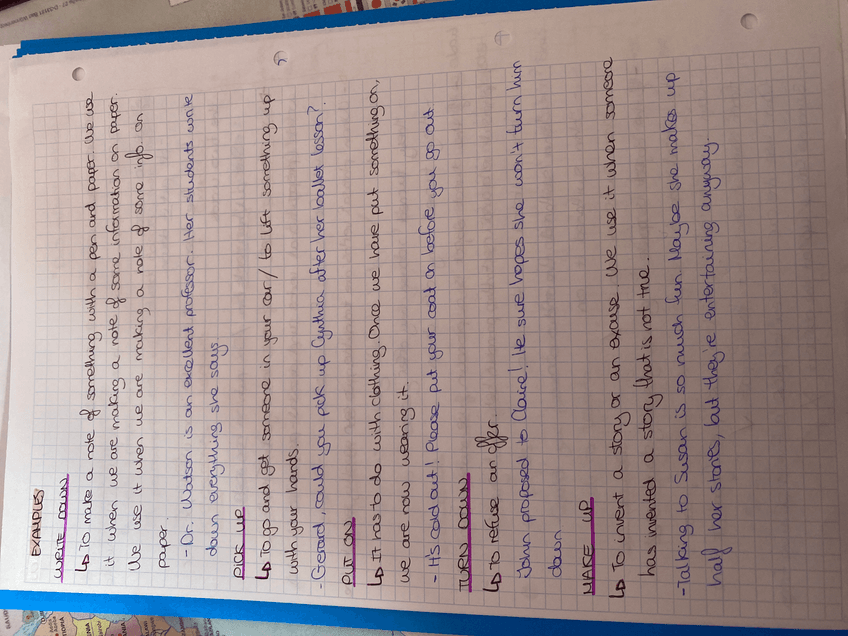 EXAMPLES
WRITE DOWN
↳ To make a note of something with a pen and paper. We use
it when we are making a note of some information on paper.
We use it when we are making a note of some info. on
paper.
- Dr. Watson is an excellent professor. Her students write
down everything she says
PICK UP
↳ To go and get someone in your car / to lift something up
with your hands.
- Gerard, could you pick up Cynthia after her ballet lesson?
PUT ON
↳ It has to do with clothing. Once we have put something on,
we are now wearing it.
- It's cold out! Please put your coat on before you go out
TURN DOWN
↳ To refuse an offer.
John proposed to Claire! He sure hopes she won't turn him
down
MAKE UP
↳ To invent a story or an excuse. We use it when someone
has invented a story that is not true.
- Talking to Susan is so much fun. Maybe she makes up
half her stories, but they're entertaining anyway.